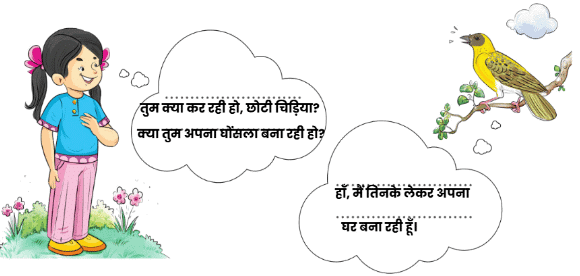 तुम क्या कर रही हो, छोटी चिड़िया?
क्या तुम अपना घोंसला बना रही हो?
हाँ, मैं तिनके लेकर अपना
घर बना रही हूँ।